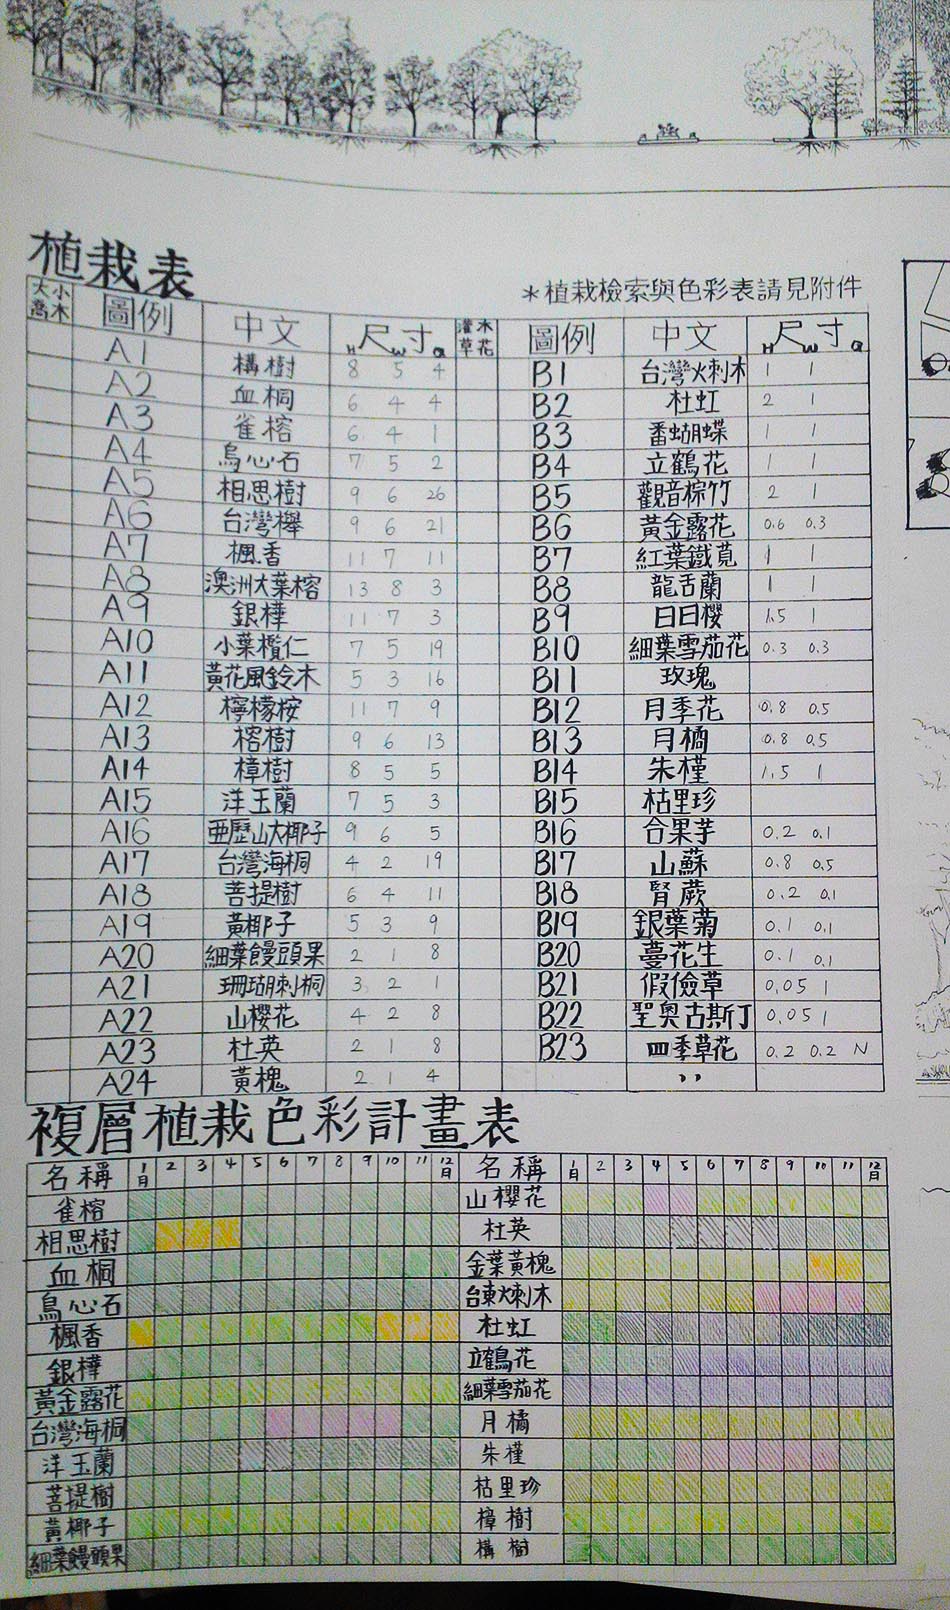 植栽表
*植栽檢索與色彩表請見附件
大小喬木 圖例 中文 尺寸 H W Q 灌木草花 圖例 中文 尺寸 H W Q
A1 構樹 8 5 4 B1 台灣火刺木 1 1
A2 血桐 6 4 4 B2 杜虹 2 1
A3 雀榕 6 4 1 B3 番蝴蝶 1 1
A4 烏心石 7 5 2 B4 立鶴花 1 1
A5 相思樹 9 6 26 B5 觀音棕竹 2 1
A6 台灣櫸 9 6 21 B6 黃金露花 0.6 0.3
A7 楓香 11 7 11 B7 紅葉鐵莧 1 1
A8 澳洲大葉榕 13 8 3 B8 龍舌蘭 1 1
A9 銀樺 11 7 3 B9 日日櫻 1.5 1
A10 小葉欖仁 7 5 19 B10 細葉雪茄花 0.3 0.3
A11 黃花風鈴木 5 3 16 B11 玫瑰
A12 檸檬桉 11 7 9 B12 月季花 0.8 0.5
A13 榕樹 9 6 13 B13 月橘 0.8 0.5
A14 樟樹 8 5 5 B14 朱槿 1.5 1
A15 洋玉蘭 7 5 3 B15 枯里珍
A16 亞歷山大椰子 9 6 5 B16 合果芋 0.2 0.1
A17 台灣海桐 4 2 19 B17 山蘇 0.8 0.5
A18 菩提樹 6 4 11 B18 腎蕨 0.2 0.1
A19 黃椰子 5 3 9 B19 銀葉菊 0.1 0.1
A20 細葉饅頭果 2 1 8 B20 蔓花生 0.1 0.1
A21 珊瑚刺桐 3 2 1 B21 假儉草 0.05 1
A22 山櫻花 4 2 8 B22 聖奧古斯丁 0.05 1
A23 杜英 2 1 8 B23 四季草花 0.2 0.2 N
A24 黃槐 2 1 4 ,,
複層植栽色彩計畫表
名稱 1月 2 3 4 5 6 7 8 9 10 11 12月 名稱 1月 2 3 4 5 6 7 8 9 10 11 12月
雀榕 山櫻花
相思樹 杜英
血桐 金葉黃槐
烏心石 台東火刺木
楓香 杜虹
銀樺 立鶴花
黃金露花 細葉雪茄花
台灣海桐 月橘
洋玉蘭 朱槿
菩提樹 枯里珍
黃椰子 樟樹
細葉饅頭果 構樹